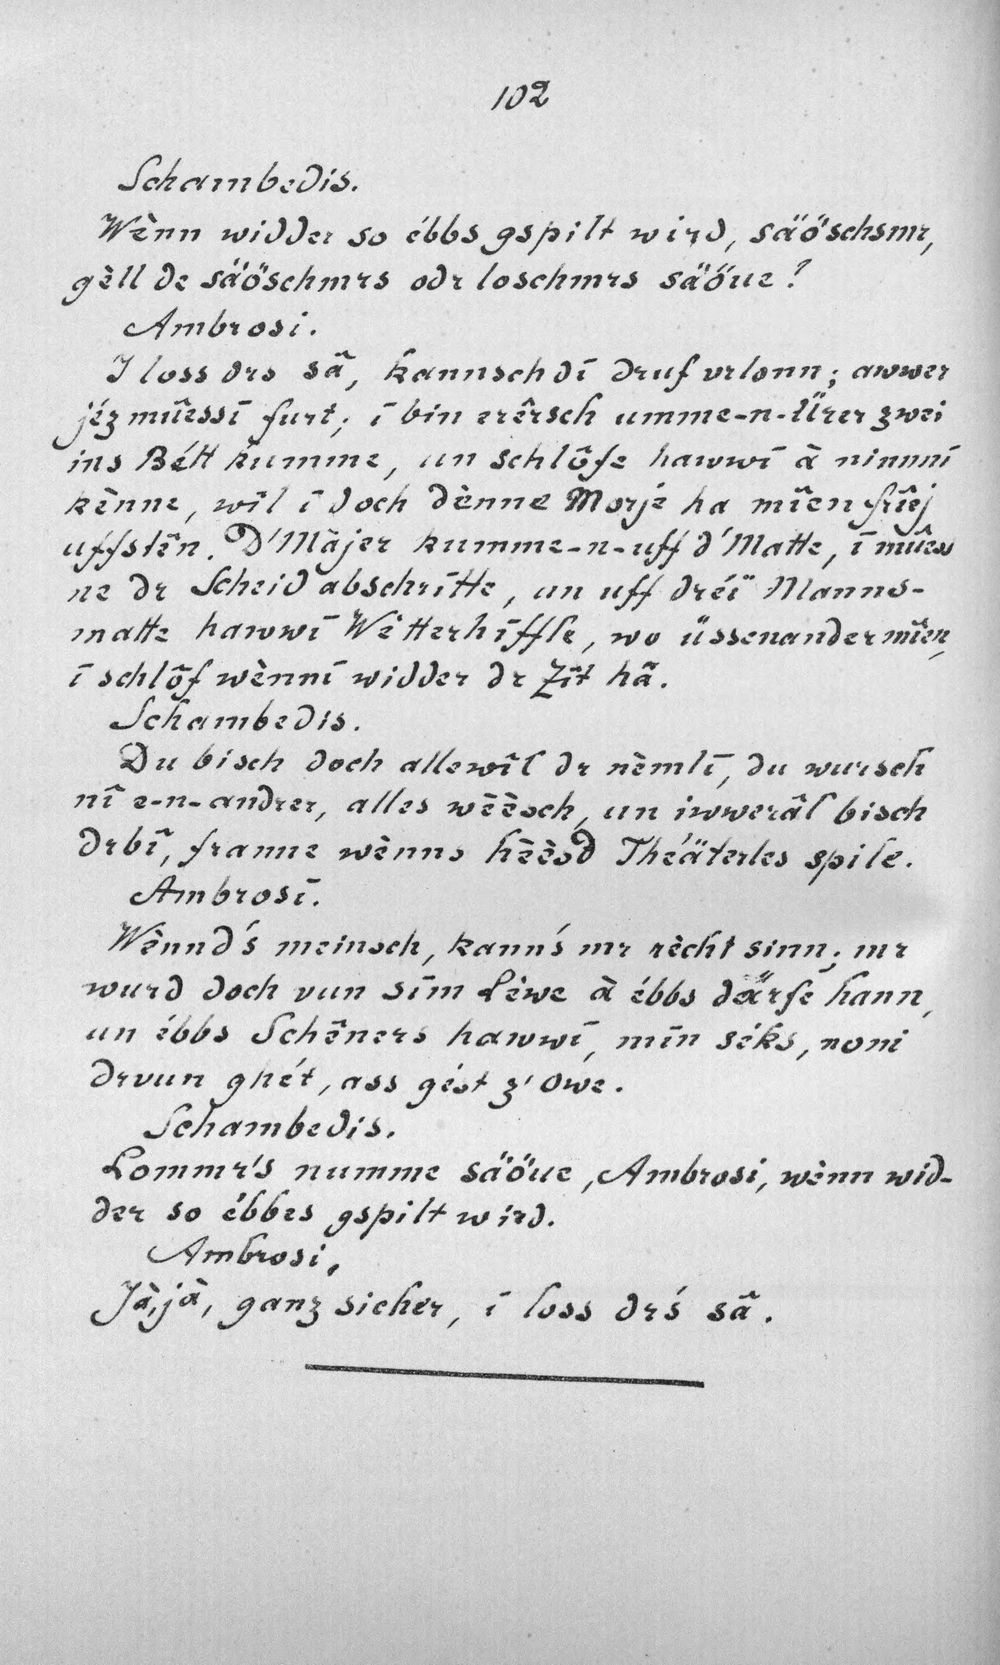 102
Schambedis.
Wènn widder so ébbs gspilt wird, säöschsmr,
gèll de säöschmrs odr loschmrs säöue?
Ambrosi.
I loss drs sâ, kannsch dī druf vrlonn; awwer
jéz mûessī furt; ī bin erêrsch umme-n-Ürer zwei
ins Bétt kumme, un schlôfe hawwī à ninnnī
kènne, wîl ī doch dènne Morjé ha mîen frîej
uffstên. D'Màjer kumme-n-uff d'Matte, ī mûess
ne dr Scheid abschrītte, un uff dréï Manns-
matte hawwī Wètterhīffle, wo üssenander mîen,
ī schlôf wènnī widder dr Zît hâ.
Schambedis.
Du bisch doch allewîl dr nèmlī, du wursch
nî e-n-andrer, alles wèèsch, un iwwerâl bisch
drbî, franne wènns hèèsd Théäterles spile.
Ambrosī.
Wènnd's meinsch, kann's mr rècht sinn; mr
wurd doch vun sīm Lèwe à ébbs därfe hann,
un ébbs Schêners hawwī, mīn séks, noni
drvun ghét, ass gést z'Owe.
Schambedis.
Lommr's numme säöue, Ambrosi, wènn wid-
der so ébbes gspilt wird.
Ambrosi.
Jà, jà, ganz sicher, ī loss dr's sâ.